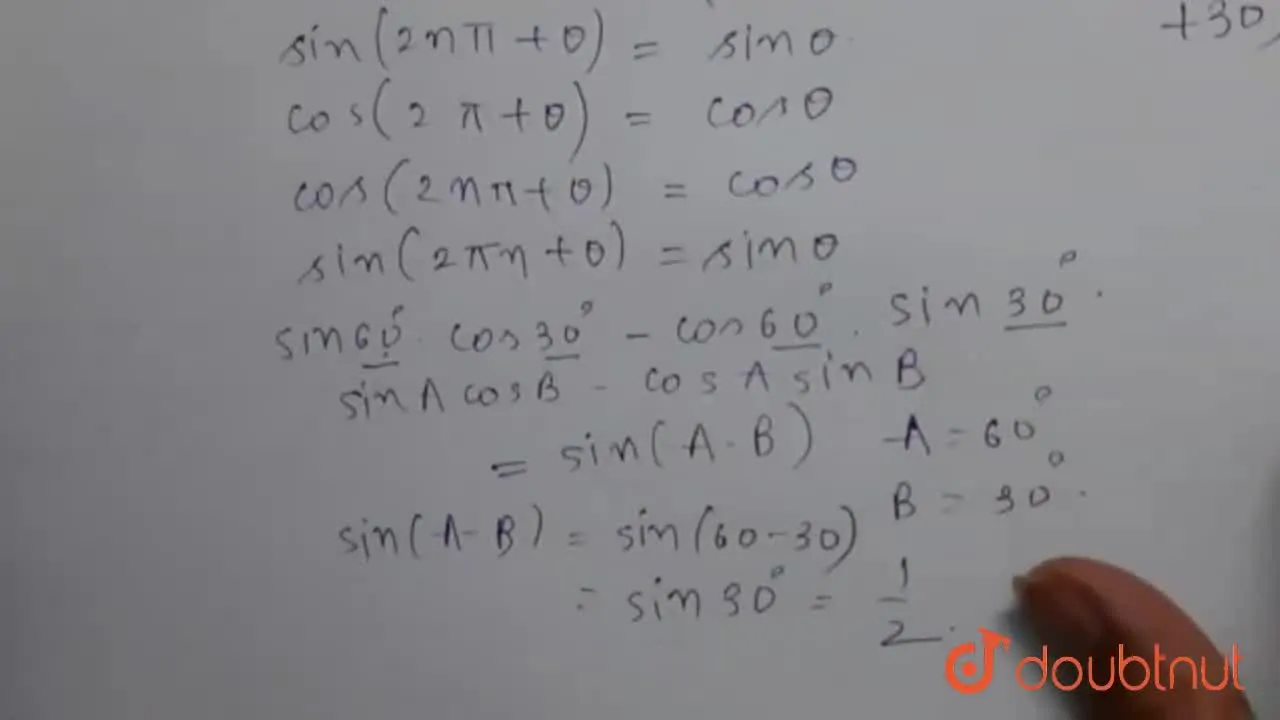 +30)
sin(2nπ + θ) = sinθ
cos(2 π + θ) = cosθ
cos(2nπ + θ) = cosθ
sin(2πn + θ) = sinθ
sin60°. cos30° - cos60°. sin 30°.
sinA cosB - cosA sinB
= sin(A-B) A = 60°
B = 30°.
sin(A-B) = sin(60-30)
= sin30° = 1/2.
doubtnut